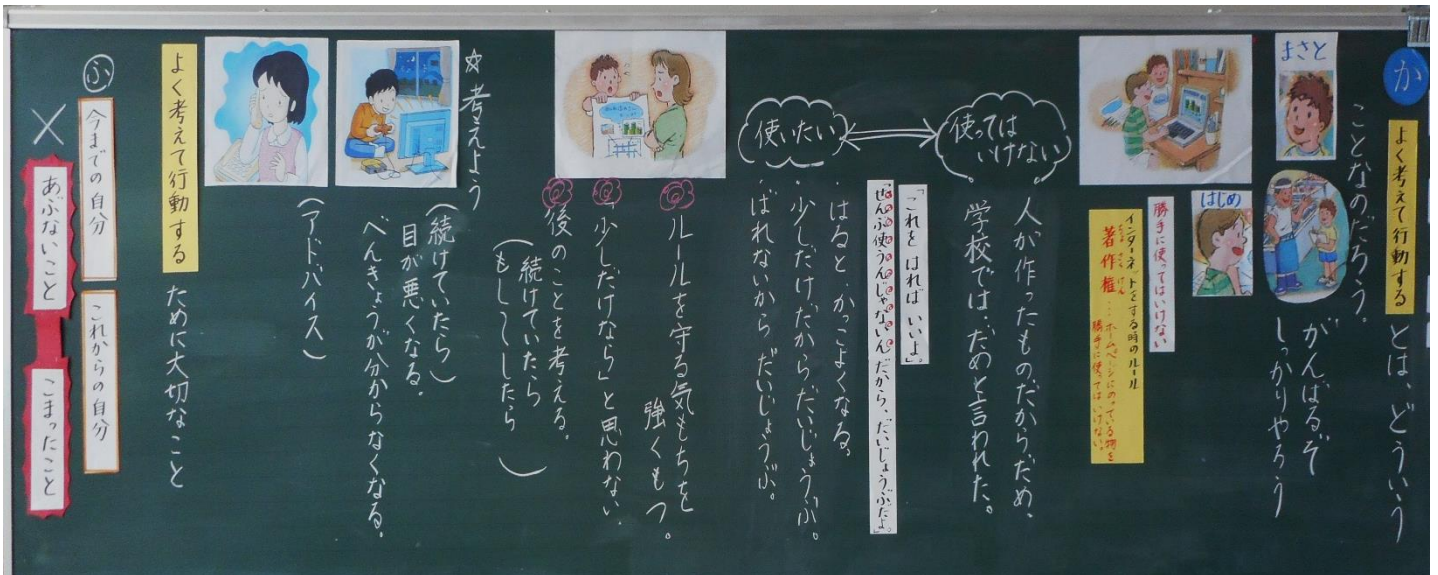 か
よく考えて行動するとは、どういう
ことなのだろう。
まさと
がんばるぞ
しっかりやろう
はじめ
インターネットをする時のルール
著作権……ホームページにのっている物を
ちょさくけん
勝手に使ってはいけない。
勝手に使ってはいけない
使っては
いけない
・人が作ったものだから、だめ、
・学校では、だめと言われた。
「これを はれば いいよ」。
「ぜんぶ使うんじゃないんだから、だいじょうぶだよ」。
使いたい
・はると、かっこよくなる。
・少しだけだからだいじょうぶ。
・ばれないから だいじょうぶ。
ルールを守る気もちを
強くもつ。
「少しだけなら」と思わない、
後のことを考える。
(続けていたら
もし〜したら)
☆考えよう
(続けていたら)
目が悪くなる。
べんきょうが分からなくなる。
(アドバイス)
よく考えて行動する ために大切なこと
ふ
今までの自分
これからの自分
×
あぶないこと
こまったこと